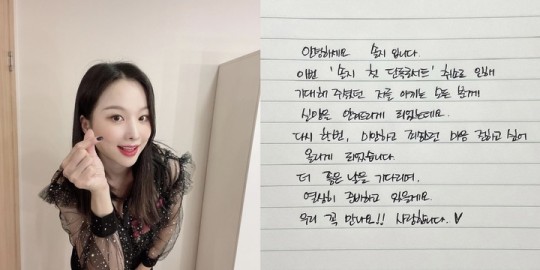 안녕하세요 솔지 입니다.
이번 '솔지 첫 단독콘서트' 취소로 인해
기대해 주셨던 저를 아끼는 모든 분께
실망을 안겨드리게 되었는데요.
다시 한번, 미안하고 죄송했던 마음 전하고 싶어
올리게 되었습니다.
더 좋은 날을 기다리며,
열심히 준비하고 있을게요.
우리 꼭 만나요!! 사랑합니다. ♥